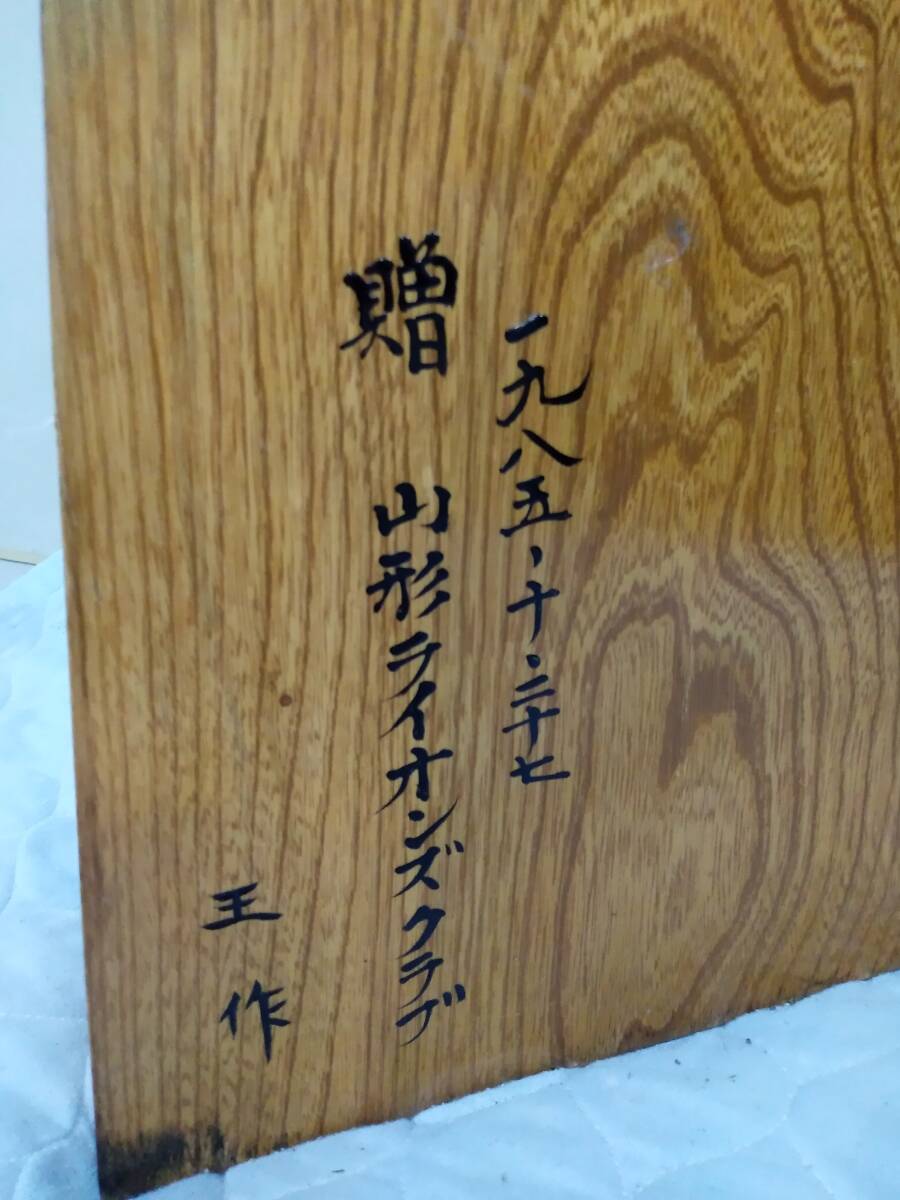 一九八五、十、二十七
贈 山形ライオンズクラブ
王作